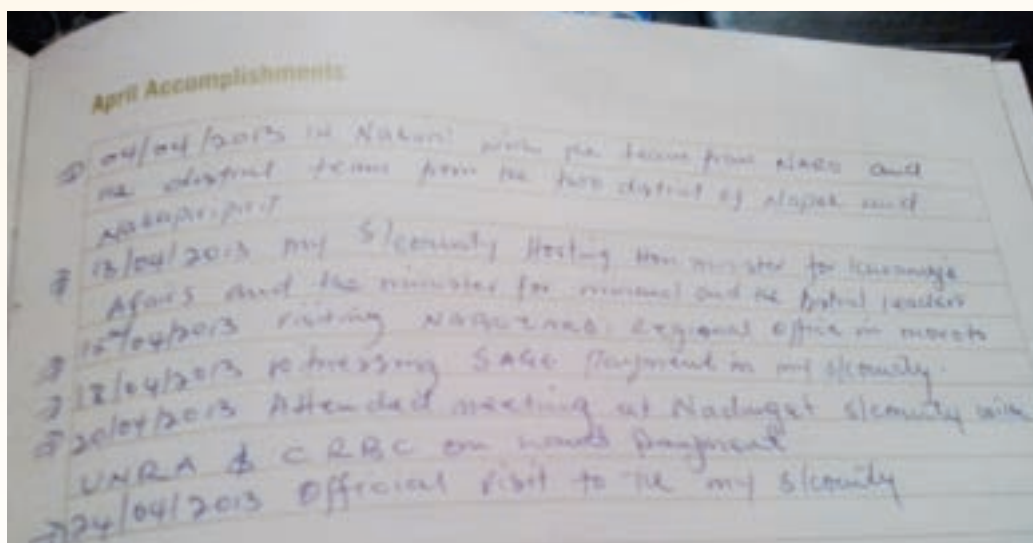 April Accomplishments
04/04/2013 in with the team from NARO and
the district team from the two district of Napak and
Nakapiripirit
13/04/2013 my S/county Hosting Hon minister for Karamoja
Afairs and the minister for mineral and the District leaders
/04/2013 visiting Regional office in moroto
18/04/2013 witnessing SAGE Payment in my s/county.
20/04/2013 Attended meeting at Nadunget s/county with
UNRA & CRBC on Payment
24/04/2013 Official visit to the my s/county